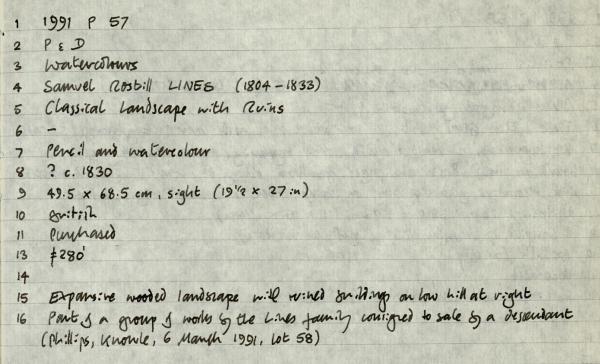 1 1991 P 57
2 P & D
3 Watercolours
4 Samuel Rostill LINES (1804-1833)
5 Classical Landscape with Ruins
6 -
7 Pencil and watercolour
8 ? c. 1830
9 49.5 x 68.5 cm, sight (19½ x 27 in)
10 British
11 Purchased
13 £280
14
15 Expansive wooded landscape with ruined buildings on low hill at right
16 Part of a group of works by the Lines family consigned to sale by a descendant
(Phillips, Knowle, 6 March 1991, lot 58)